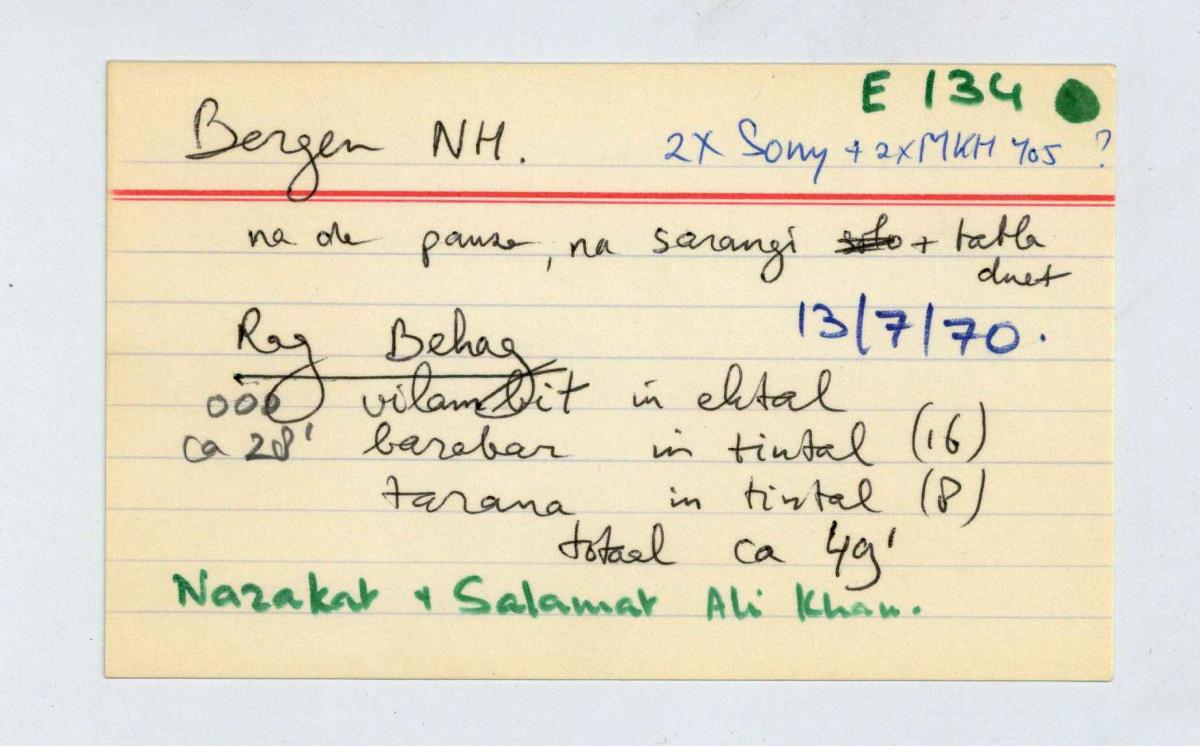 E 134
Bergen NH.
2X Sony + 2xMKH 405 ?
na de pauze, na sarangi solo + tabla
duet
13/7/70.
Rag Behag
000 vilambit in ektal
ca 28' barabar in tintal (16)
tarana in tintal (8)
totaal ca 49'
Nazakat + Salamat Ali Khan.